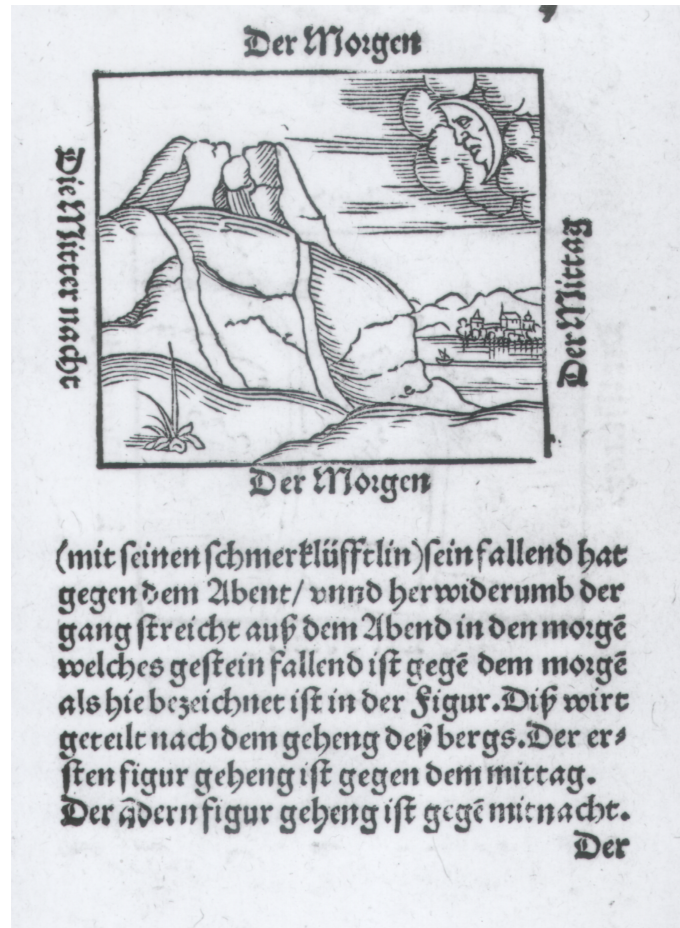 Der Morgen
Die Mitternacht
Der Mittag
Der Morgen
(mit seinen schmerklüfftlin)sein fallend hat
gegen dem Abent/ vnnd herwiderumb der
gang streicht auß dem Abend in den morgẽ
welches gestein fallend ist gegẽ dem morgẽ
als hie bezeichnet ist in der Figur.Diß wirt
geteilt nach dem geheng deß bergs.Der er⸗
sten figur geheng ist gegen dem mittag.
Der ãdern figur geheng ist gegẽ mitnacht.
Der